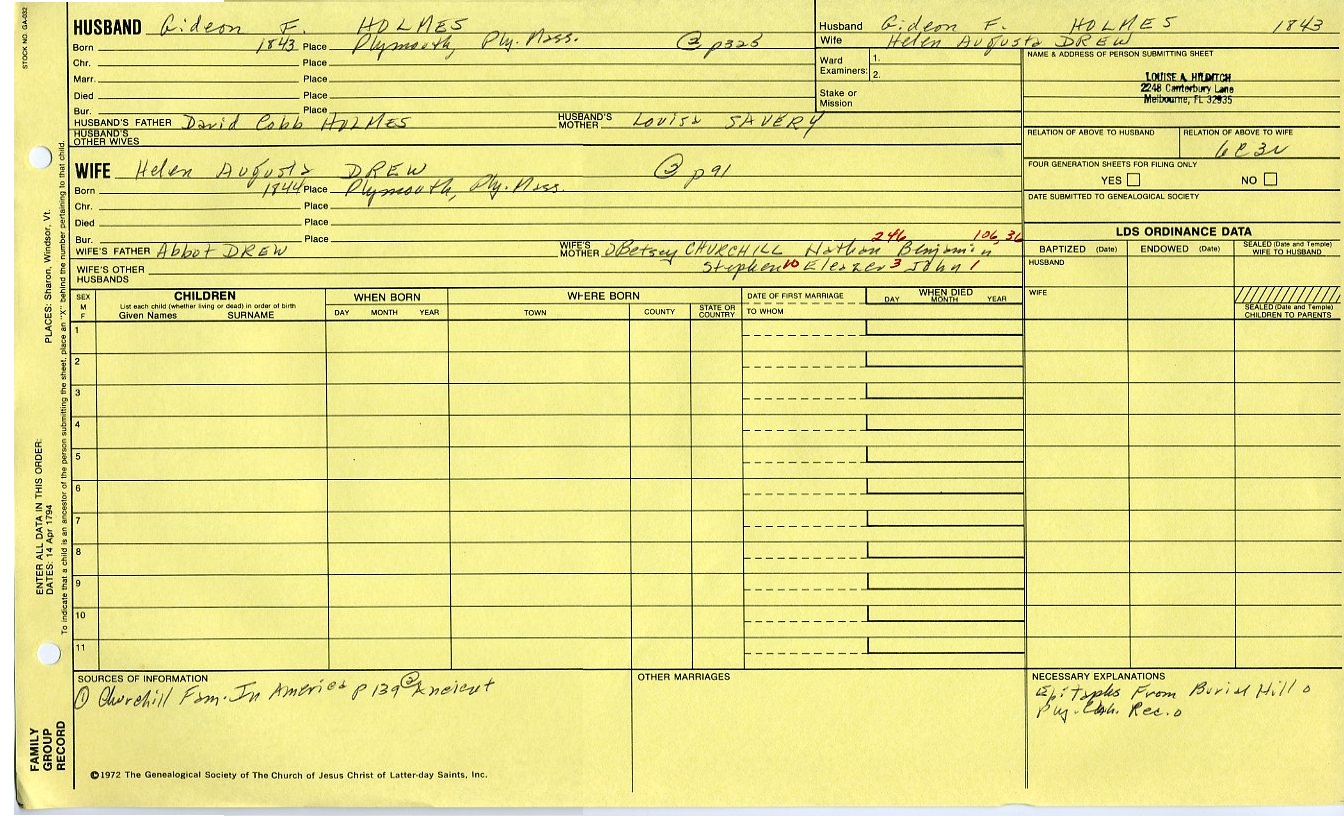 STOCK NO. GA-032
HUSBAND Gideon F. HOLMES
Born 1843 Place Plymouth, Ply. Mass. ② p325
Chr. Place
Marr. Place
Died Place
Bur. Place
HUSBAND'S FATHER David Cobb HOLMES HUSBAND'S MOTHER Louisa SAVERY
HUSBAND'S OTHER WIVES
Husband Gideon F. HOLMES 1843
Wife Helen Augusta DREW
Ward Examiners: 1.
2.
Stake or Mission
NAME & ADDRESS OF PERSON SUBMITTING SHEET
LOUISE A. HILDITCH
2248 Canterbury Lane
Melbourne, FL 32935
RELATION OF ABOVE TO HUSBAND RELATION OF ABOVE TO WIFE
6C3R
FOUR GENERATION SHEETS FOR FILING ONLY
YES NO
DATE SUBMITTED TO GENEALOGICAL SOCIETY
WIFE Helen Augusta DREW ② p91
Born 1844 Place Plymouth, Ply. Mass.
Chr. Place
Died Place
Bur. Place
WIFE'S FATHER Abbot DREW WIFE'S MOTHER Betsey CHURCHILL Nathan 246 Benjamin 106,36
Stephen 10 Eleazer 3 John 1
WIFE'S OTHER HUSBANDS
LDS ORDINANCE DATA
BAPTIZED (Date) ENDOWED (Date) SEALED (Date and Temple) WIFE TO HUSBAND
HUSBAND
WIFE
SEALED (Date and Temple) CHILDREN TO PARENTS
SEX M F
CHILDREN
List each child (whether living or dead) in order of birth
Given Names SURNAME
WHEN BORN
DAY MONTH YEAR
WHERE BORN
TOWN COUNTY STATE OR COUNTRY
DATE OF FIRST MARRIAGE
TO WHOM
WHEN DIED
DAY MONTH YEAR
1
2
3
4
5
6
7
8
9
10
11
SOURCES OF INFORMATION
① Churchill Fam. In America p 139 ② Ancient
OTHER MARRIAGES
NECESSARY EXPLANATIONS
Epitaphs From Burial Hill
Ply. Rec.
©1972 The Genealogical Society of The Church of Jesus Christ of Latter-day Saints, Inc.
FAMILY GROUP RECORD
ENTER ALL DATA IN THIS ORDER:
DATES: 14 Apr 1794
PLACES: Sharon, Windsor, Vt.
To indicate that a child is an ancestor of the person submitting the sheet, place an "X" behind the number pertaining to that child.